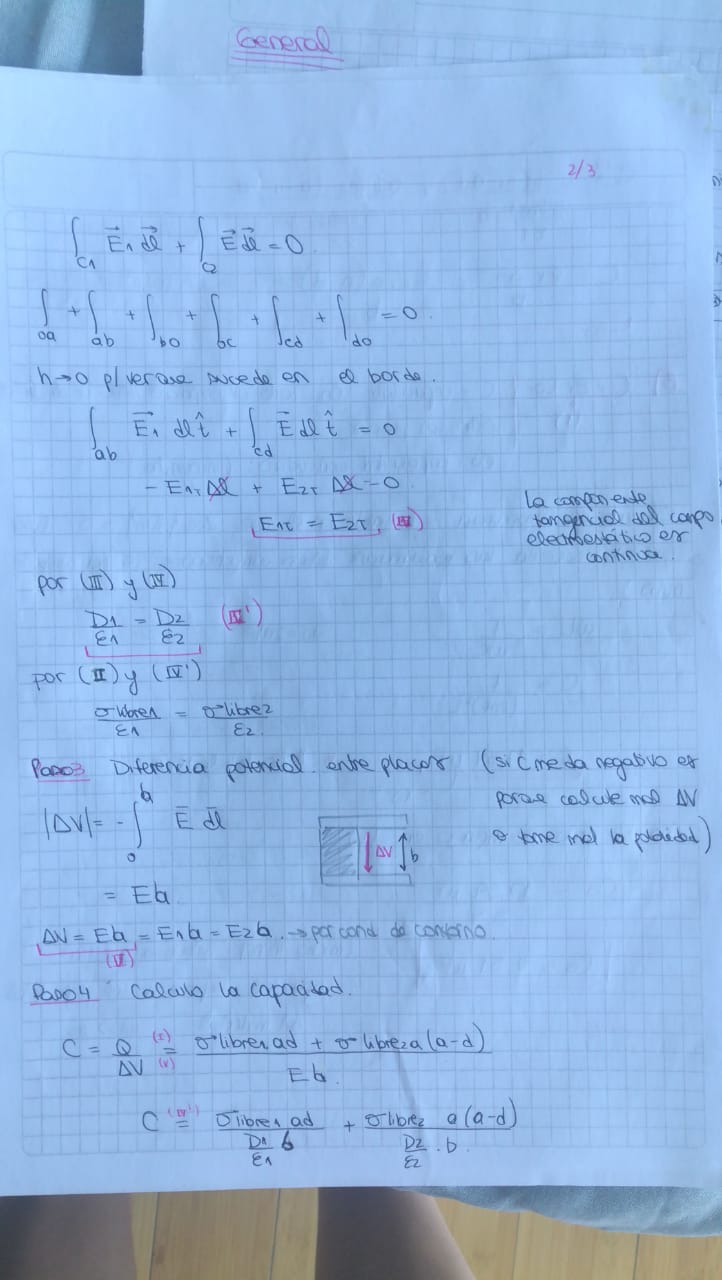 General
2/3
∫_C1 E⃗1 dl⃗ + ∫_C2 E⃗ dl⃗ = 0
∫_oa + ∫_ab + ∫_bo + ∫_bc + ∫_cd + ∫_do = 0.
h→0 p/ver que sucede en el borde.
∫_ab E⃗1 dl t̂ + ∫_cd E̅ dl t̂ = 0
- E1τ Δl + E2τ Δl = 0
E1τ = E2τ. (IV)
La componente
tangencial del campo
electrostático es
continua.
por (III) y (IV)
D1/ε1 = D2/ε2 (IV')
por (II) y (IV')
σlibre1/ε1 = σlibre2/ε2
Paso3 Diferencia potencial entre placas (si C me da negativo es
porque calcule mal ΔV
o tome mal la polaridad)
|ΔV| = - ∫_0^b E̅ dl⃗
ΔV b
= Eb.
ΔV = Eb = E1b = E2b. → por cond de contorno.
(V)
Paso4 Calculo la capacidad.
C = Q/ΔV (I)=(V) (σlibre1 ad + σlibre2 a(a-d))/(Eb.)
C (IV')= σlibre1 ad/(D1/ε1 b) + σlibre2 a(a-d)/(D2/ε2 . b.)